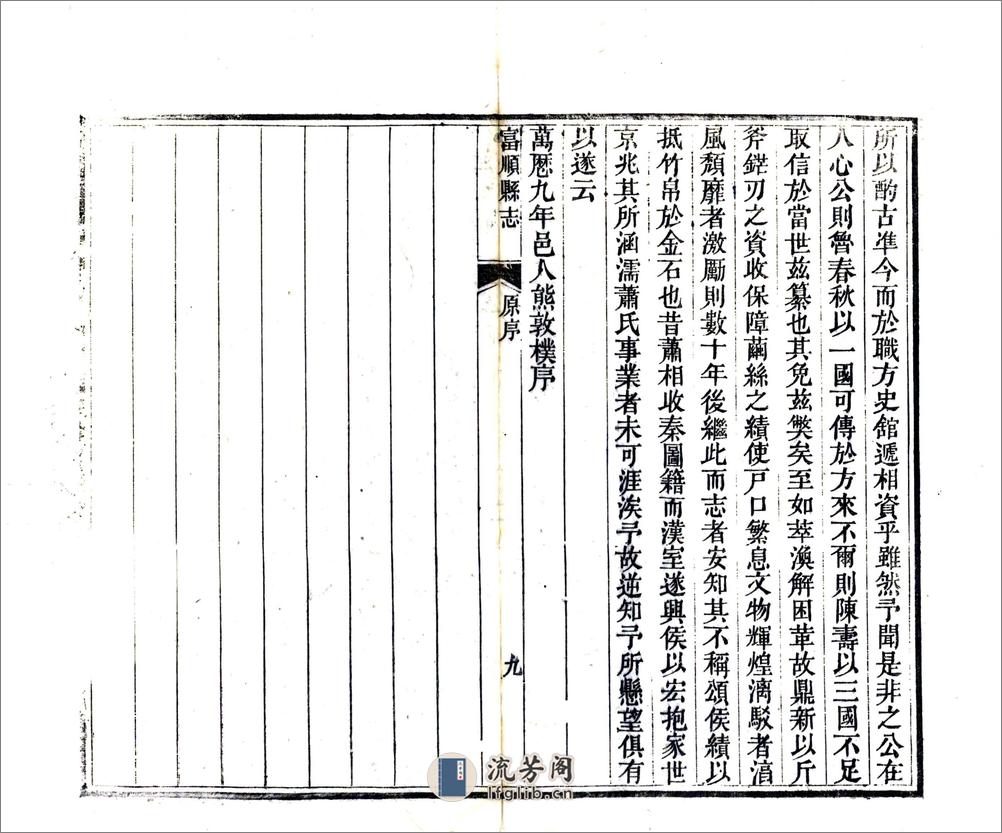 所以酌古準今而於職方史館遞相資乎雖然予聞是非之公在
人心公則魯春秋以一國可傳於方來不爾則陳壽以三國不足
取信於當世茲纂也其免茲獘矣至如萃渙解困革故鼎新以斤
斧鋩刃之資收保障繭絲之績使戸口繁息文物輝煌漓駁者淯
風頹靡者激勵則數十年後繼此而志者安知其不稱頌侯績以
抵竹帛於金石也昔蕭相收秦圖籍而漢室遂興侯以宏抱家世
京兆其所涵濡蕭氏事業者未可涯涘予故逆知予所懸望俱有
以遂云
萬厯九年邑人熊敦樸序
富順縣志
原序
九
流芳阁
lfglib.cn